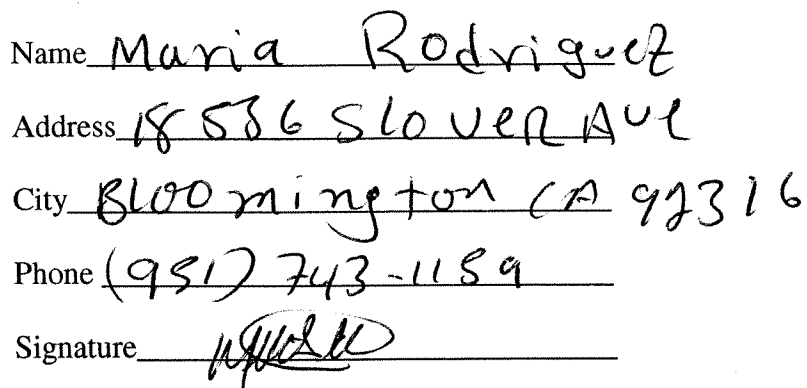 Name Maria Rodriguez
Address 18536 Slover Ave
City Bloomington CA 92316
Phone (951) 743-1159
Signature